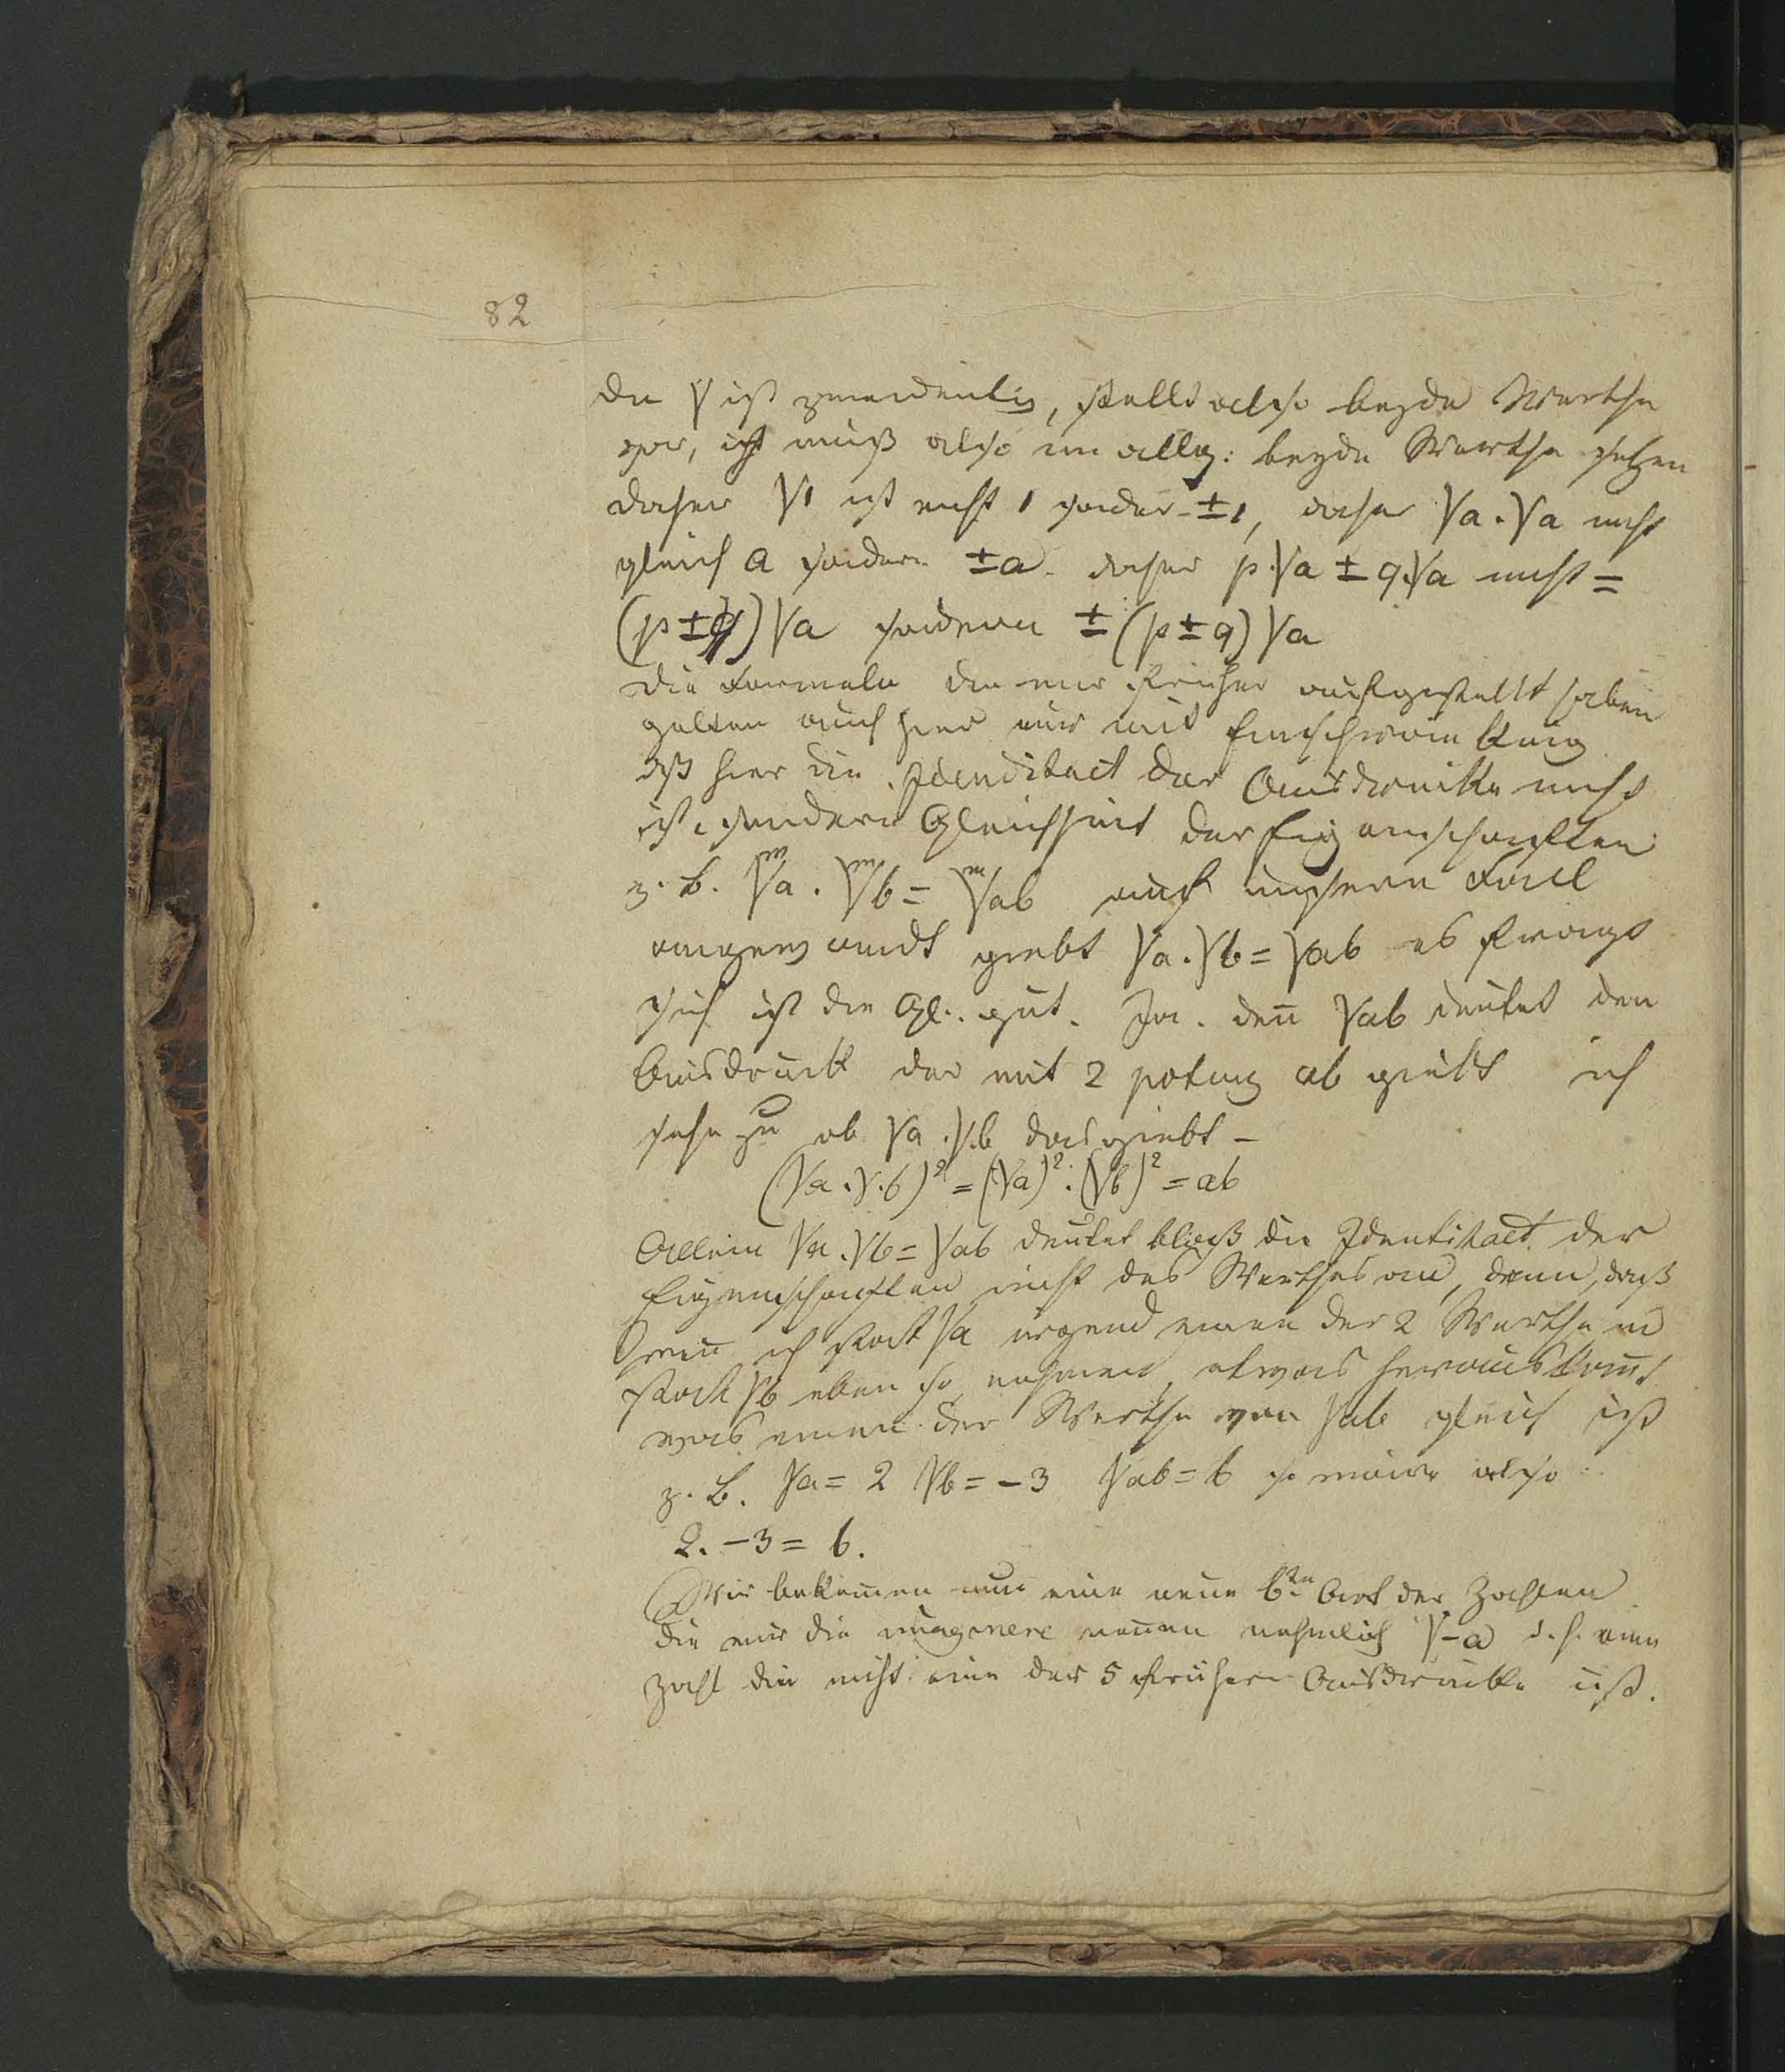 82
die √ ist zweideutig, stellt also beyde Werthe
vor, ich muß also im allg: beyde Werthe setzen
daher √1 ist nicht 1 sonder ±1, daher √a.√a nicht
gleich a sondern ±a. daher p.√a ± q.√a nicht =
(p±q)√a sondern ±(p±q)√a
Die Formeln die wir früher aufgestellt haben
gelten auch hier nur mit Einschränkung
dß hier die Idenditaet der Ausdrücke nicht
ist, sondern Gleichheit der Eigenschaften
z. B. ᵐ√a . ᵐ√b = ᵐ√ab auf unsern Fall
angewandt giebt √a.√b = √ab es fragt
sich ist die Gl. gut. Ja. den̅ √ab deutet den
Ausdruck der mit 2 potenz ab giebt ich
sehe zu ob √a.√b das giebt –
(√a.√b)² = (√a)².(√b)² = ab
Allein √a.√b = √ab deutet bloß die Identitaet der
Eigenschaften nicht des Werthes an, denn, daß
wen̅ ich statt √a irgend einen der 2 Werthe u
statt √b eben so nehmen, etwas herauskom̅t
was einem der Werthe von √ab gleich ist
z. B. √a = 2 √b = -3 √ab = 6 so wäre also
2. -3 = 6.
Wir bekom̅en nun eine neue 6te Art der Zahlen
die wir die imaginere nen̅en nehmlich √-a d. h. eine
Zahl die nicht eine der 5 frühern Ausdrücke ist.